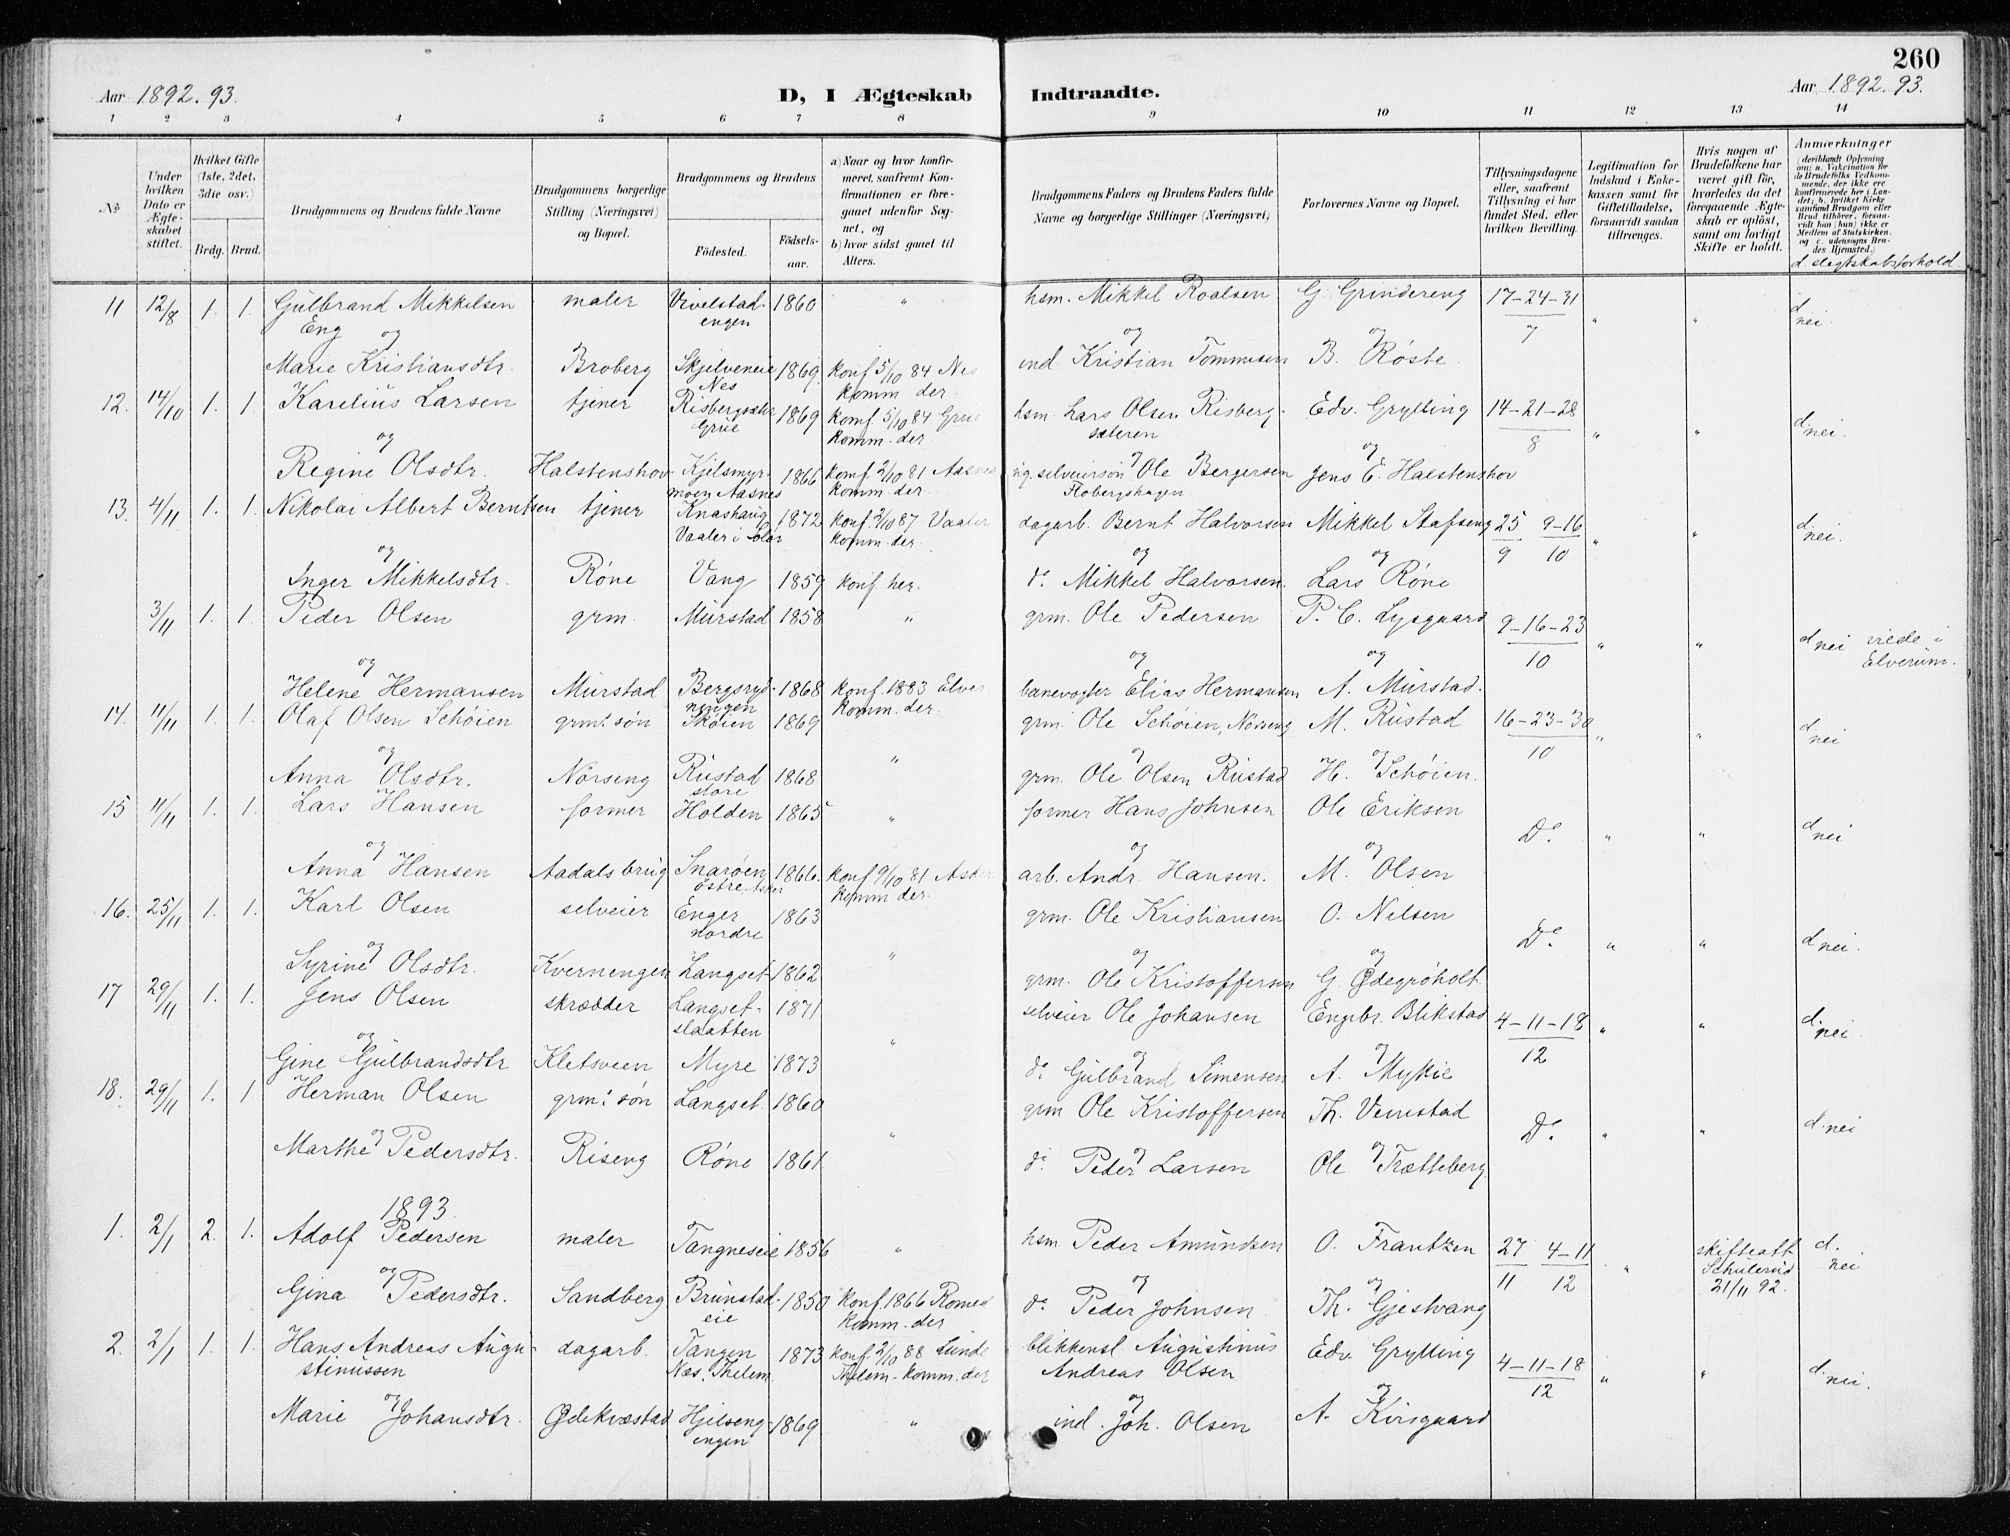 260
Aar 1892. 93.
D, I Ægteskab Indtraadte.
Aar 1892. 93.
1 2 3 4 5 6 7 8 9 10 11 12 13 14
No
Under hvilken Dato er Ægteskabet stiftet.
Hvilket Gifte (1ste, 2det, 3die osv.)
Brdg. Brud.
Brudgommens og Brudens fulde Navne
Brudgommens borgerlige Stilling (Næringsvei) og Bopæl.
Brudgommens og Brudens
Födested. Födselsaar.
a) Naar og hvor konfirmeret, saafremt Konfirmationen er foregaaet udenfor Sognet, og
b) hvor sidst gaaet til Alters.
Brudgommens Faders og Brudens Faders fulde Navne og borgerlige Stillinger (Næringsvei)
Forlovernes Navne og Bopæl.
Tillysningsdagene eller, saafremt Tillysning ei har fundet Sted, efter hvilken Bevilling.
Legitimation for Indskud i Enkekassen samt for Giftetilladelse, forsaavidt saadan tiltrænges.
Hvis nogen af Brudefolkene har været gift för, hvorledes da det foregaaende Ægteskab er oplöst, samt om lovligt Skifte er holdt.
Anmærkninger (deriblandt Oplysning om: a. Vakcination for de Brudefolks Vedkommende, der ikke ere konfirmerede her i Landet; b. hvilket Kirkesamfund Brudgom eller Brud tilhörer, forsaavidt han (hun) ikke er Medlem af Statskirken, og c. udensogns Brudes Hjemsted.)
d slegtskabsforhold
11 12/8 1. 1. Gulbrand Mikkelsen maler Vivelstad- 1860 " hsm. Mikkel Roalsen G. Grindereng 17-24-31 " " d nei.
Eng og engen og og 7
Marie Kristiansdtr. Broberg Skjelveneie 1869. konf 5/10 84 Nes ind. Kristian Tommesen B. Røste.
Nes komm der
12. 14/10 1. 1 Karelius Larsen tjener Risbergsæter 1869 konf 5/10 84 Grue hsm. Lars Olsen Risberg- Edv. Grylling 14-21-28 " " d. nei.
og Grue komm. der sæteren og 8
Regine Olsdtr. Halstenshov Kjelsmyr- 1866 konf 2/10 81 Aasnes selveiersøn Ole Bergersen Jens E. Halstenshov
moen Aasnes komm. der Flobergshagen
13. 4/11 1. 1. Nikolai Albert Berntsen tjener Knashaug 1872 konf. 2/10 87 Vaaler dagarb. Bernt Halvorsen Mikkel Stafseng 25/9 9-16/10 " " d nei.
og Vaaler i Solør komm. der og og
Inger Mikkelsdtr. Røne Vang 1859 konf her. do. Mikkel Halvorsen. Lars Røne
3/11 1. 1. Peder Olsen grm. Murstad 1858 " grm. Ole Pedersen P. C. Lysgaard 9-16-23 " " d nei viede i
og og og 10 Elverum.
Helene Hermansen Murstad Bergsryd- 1868 konf. 1883 Elver. banevogter Elias Hermansen A. Murstad.
ningen komm. der.
14. 11/11 1. 1. Olaf Olsen Schøien grms. søn Skøien 1869 " grm. Ole Schøien, Nørseng M. Rustad 16-23-30 " " d nei
og og og 10
Anna Olsdtr. Nørseng Rustad 1868 grm. Ole Olsen Rustad H. Schøien.
store
15 11/11 1. 1. Lars Hansen former Holden 1865 " former Hans Johnsen Ole Eriksen Do. " " d nei
og og og
Anna Hansen Aadalsbrug Snarøen 1866. konf 9/10 81 Asker arb. Andr. Hansen. M. Olsen
østre Asker komm der.
16. 25/11 1. 1. Karl Olsen selveier Enger 1863 " grm. Ole Kristiansen O. Nilsen Do. " " d nei.
og nordre og og
Syrine Olsdtr. Kvernengen Langset 1862 grm. Ole Kristoffersen G. Ødegrøholt.
17 29/11 1. 1. Jens Olsen skrædder Langset- 1871 " selveier Ole Johansen Engebr. Blikstad 4-11-18 " " d. nei.
og slaatten og og 12
Gine Gulbrandsdtr Kletsveen Myre 1873 do. Gulbrand Simensen A. Mykie
18. 29/11 1. 1. Herman Olsen grms. søn Langset. 1860 " grm Ole Kristoffersen Th. Vemstad Do. " " d. nei
og og og
Marthe Pedersdtr. Riseng Røne 1861. do. Peder Larsen Ole Trætteberg
1893.
1. 2/1 2. 1. Adolf Pedersen maler Tangneseie 1856 " hsm Peder Amundsen O. Frantzen 27/11 4-11/12 " skifteatt. Schulerud 21/11 92. d. nei
og og og
Gina Pedersdtr. Sandberg Brunstad- 1850 konf. 1866 Romed. do. Peder Johnsen. Th. Gjestvang
eie komm. der
2. 2/1 1. 1. Hans Andreas Augu- dagarb. Tangen 1873 konf 2/10 88 Lunde blikkensl. Augustinus Edv Grylling 4-11-18 " " d nei.
stinussen Næs. Thelem. Thelem- komm. der Andreas Olsen 12
og og og
Marie Johansdtr. Ødekvæstad Hjelseng- 1869 " ind. Joh. Olsen A. Kirsgaard
engen